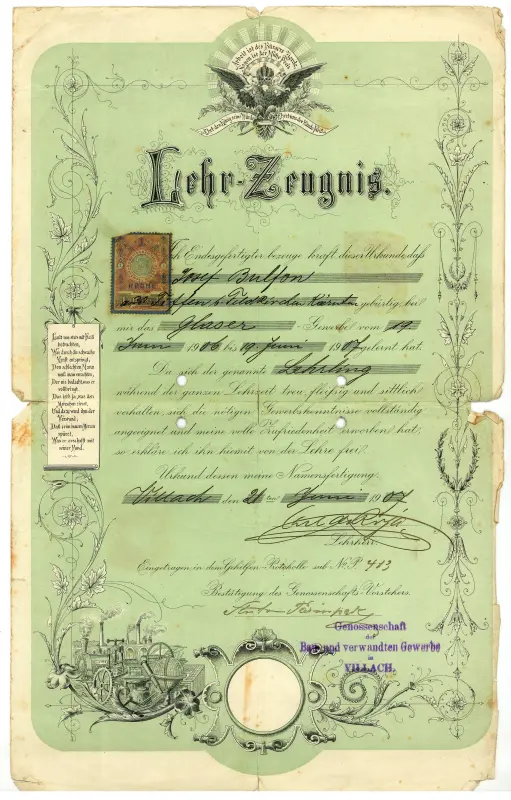 Arbeit ist des Bürgers Zierde,
Segen ist der Mühe Preis,
Lehr-Zeugnis.
Ich Endesgefertigter bezeuge kraft dieser Urkunde, daß
Josef Bulfon
in Kärnten gebürtig, bei
mir das Glaser - Gewerbe vom 19.
Juni 1906 bis 19. Juni 1907 gelernt hat.
Da sich der genannte Lehrling
während der ganzen Lehrzeit treu, fleißig und sittlich
verhalten, sich die nötigen Gewerbskenntnisse vollständig
angeeignet und meine volle Zufriedenheit erworben hat,
so erkläre ich ihn hiemit von der Lehre frei.
Urkund dessen meine Namensfertigung.
Villach den 21ten Juni 1907
Lehrherr.
Eingetragen in dem Gehilfen-Protokolle sub No. P. 413
Bestätigung des Genossenschafts-Vorstehers.
Genossenschaft
der
Bau- und verwandten Gewerbe
in
VILLACH.
Laßt uns nun mit Fleiß
betrachten,
Was durch die schwache
Kraft entspringt,
Den schlechten Mann
muß man verachten,
Der nie bedacht was er
vollbringt.
Das ist's ja, was den
Menschen zieret,
Und dazu ward ihm der
Verstand,
Daß er im innern Herzen
spüret,
Was er erschafft mit
seiner Hand.